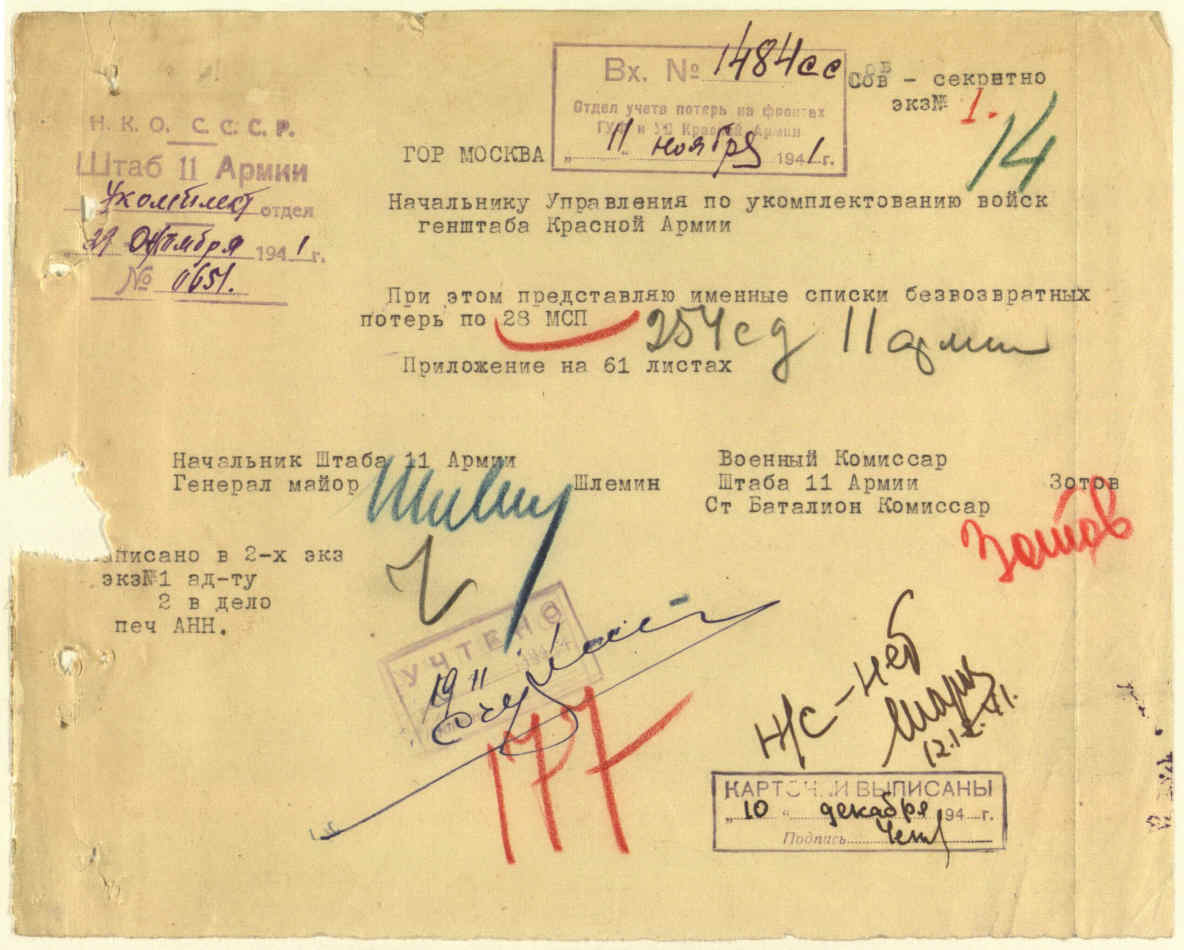 Вх. № 1484сс
Отдел учета потерь на фронтах
ГУФ и УВ Красной Армии
„ 11 " ноября 1941 г.
Сов - секретно
экз№ 1.
14
Н. К. О. С. С. С. Р.
Штаб 11 Армии
Укомплект отдел
„ 29 октября 1941 г.
№ 0651.
ГОР МОСКВА
Начальнику Управления по укомплектованию войск
генштаба Красной Армии
При этом представляю именные списки безвозвратных
потерь по 28 МСП 254 сд 11 армии
Приложение на 61 листах
Начальник Штаба 11 Армии
Генерал майор Шлемин
Военный Комиссар
Штаба 11 Армии Зотов
Ст Баталион Комиссар
Зотов
аписано в 2-х экз
экз№1 ад-ту
2 в дело
печ АНН.
УЧТЕНО
19 11
177
Н/С - нет
12.12.41.
КАРТОЧКИ ВЫПИСАНЫ
„ 10 " декабря 194 г.
Подпись